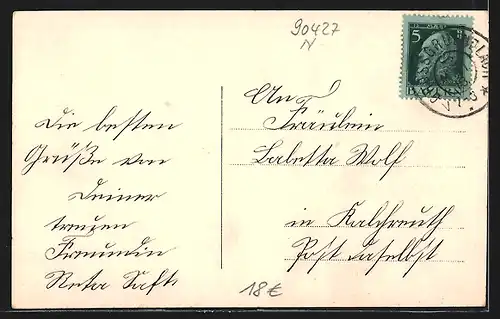 90427
N
5
An
Fräulein
Babetta Wolf
in Kalchreuth
Post daselbst
Die besten
Grüße von
Deiner
treuen
Freundin
18€